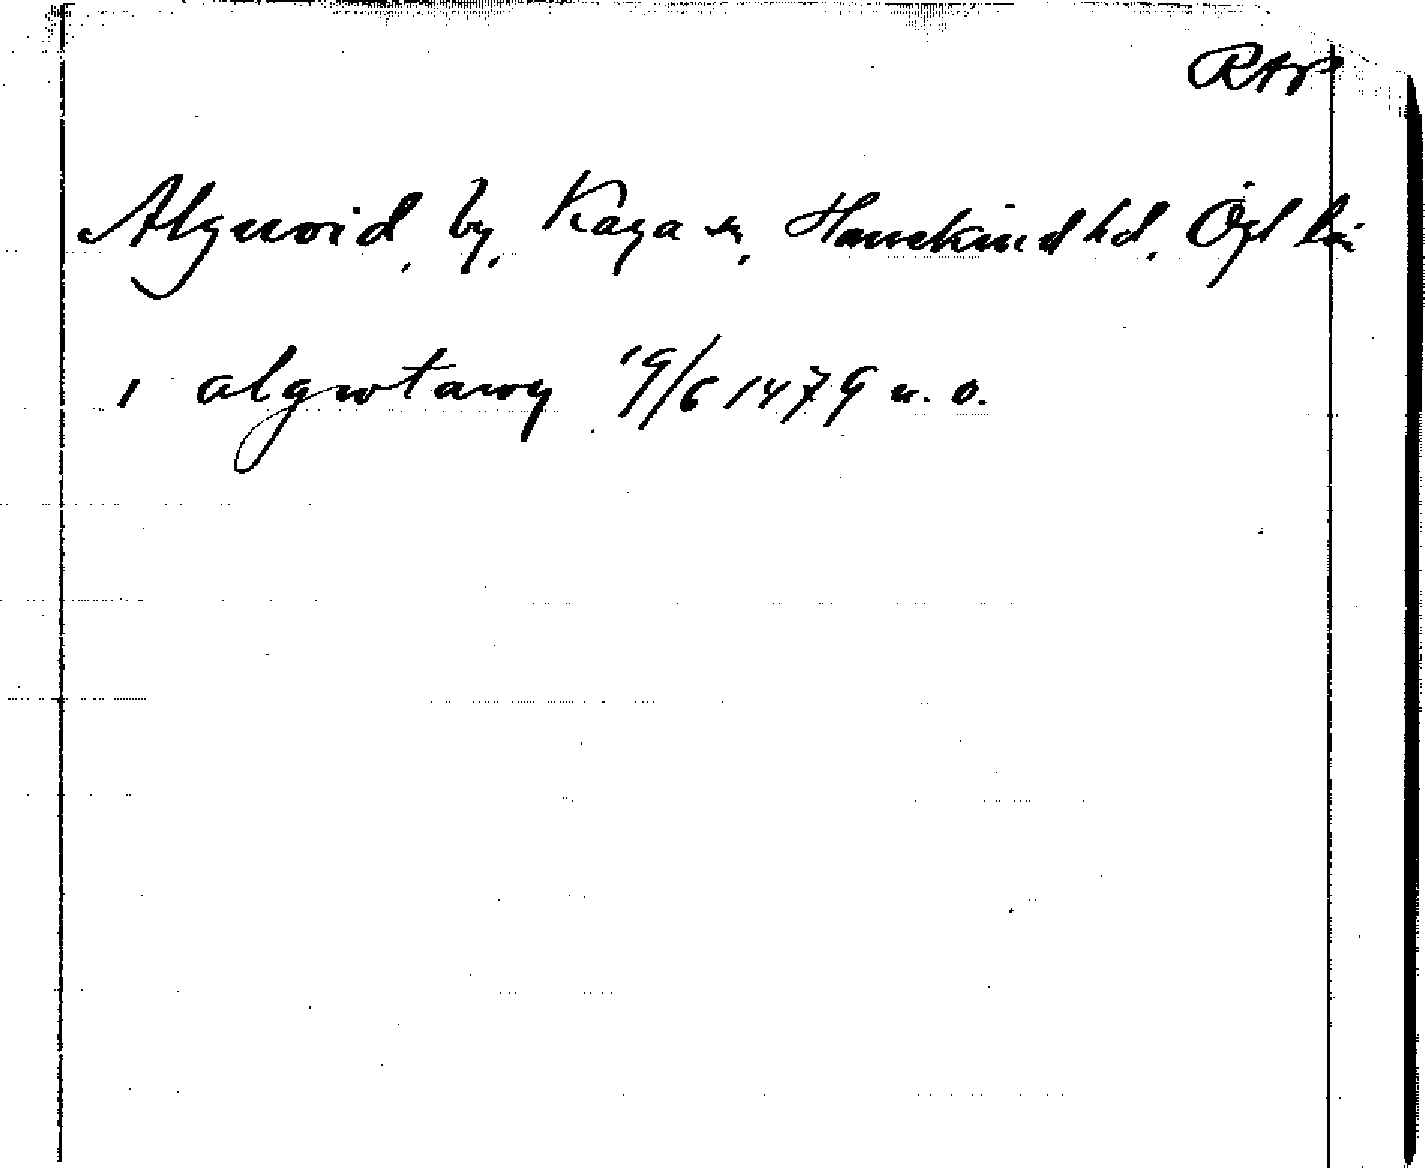 RAP
Algutvid, by, Kaga sn, Hanekinds hd, Ögl län
1 algwtawy 19/6 1479 u. o.